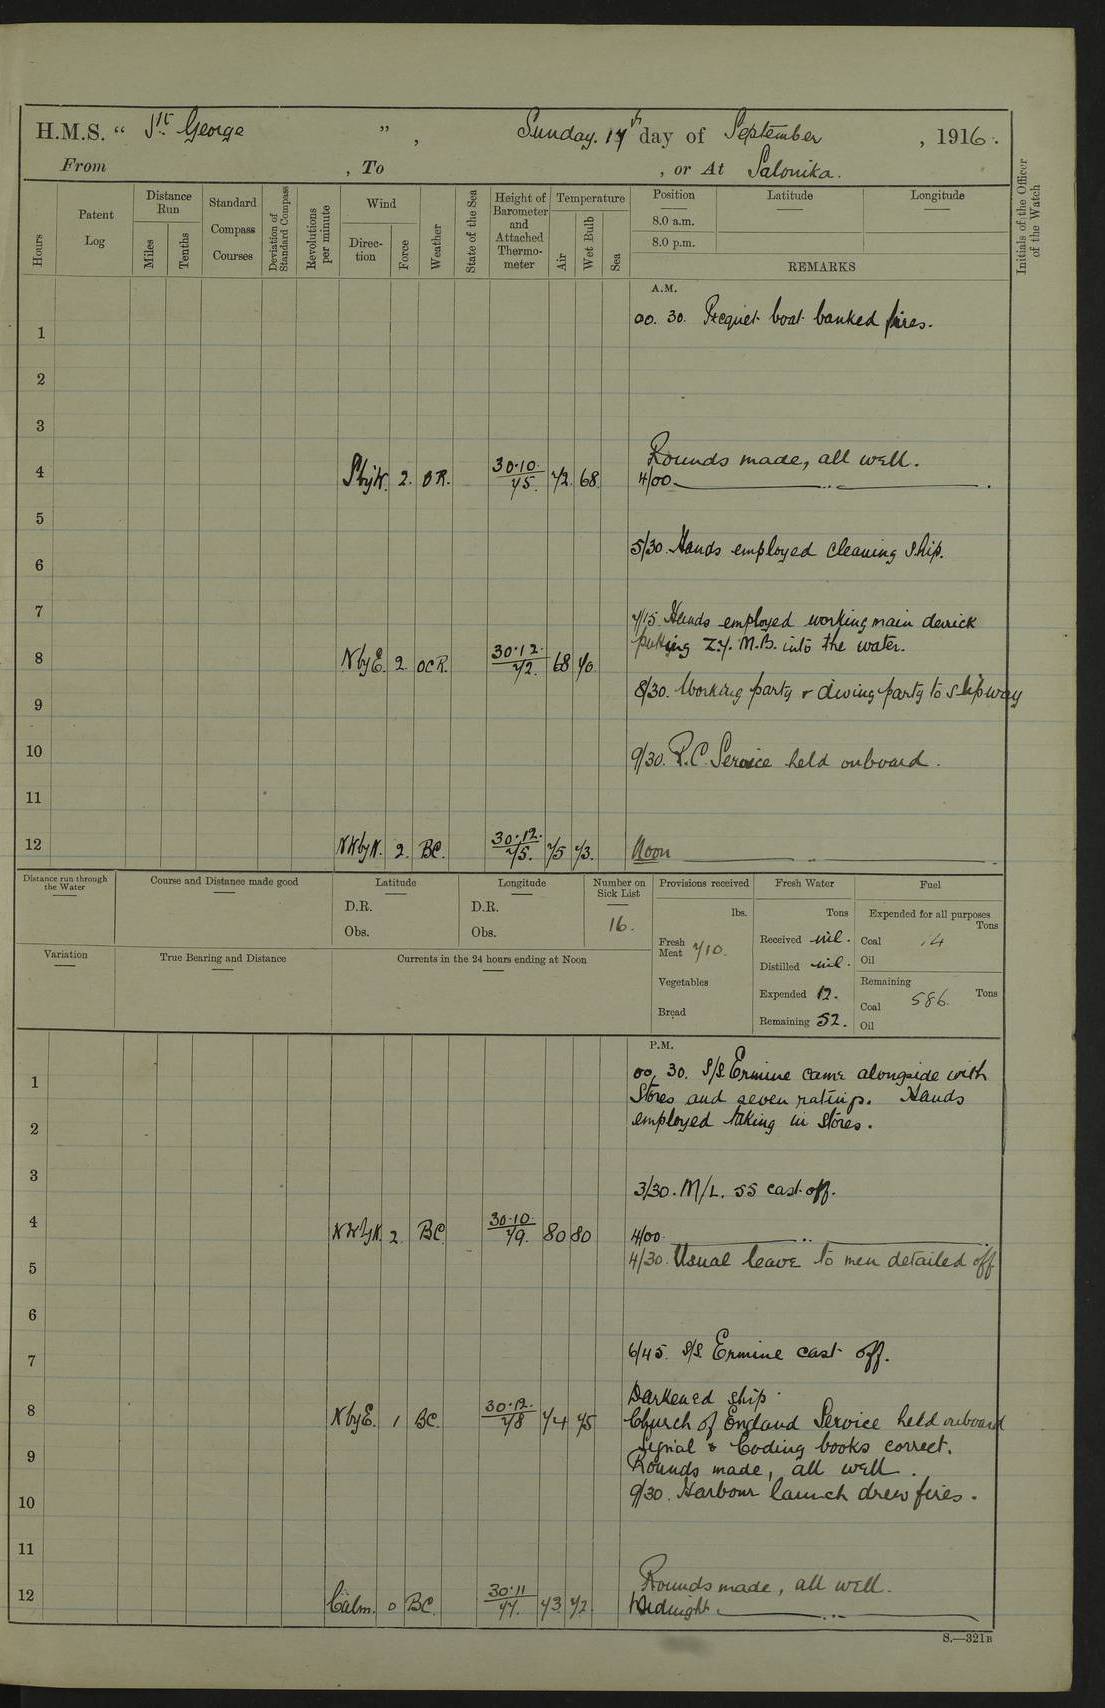 H.M.S. “ St. George ” , Sunday. 17th day of September , 1916.
From , To , or At Salonika.
Hours
Patent Log
Distance Run
Miles
Tenths
Standard Compass Courses
Deviation of Standard Compass
Revolutions per minute
Wind
Direction
Force
Weather
State of the Sea
Height of Barometer and Attached Thermometer
Temperature
Air
Wet Bulb
Sea
Position Latitude Longitude
8.0 a.m.
8.0 p.m.
REMARKS
Initials of the Officer of the Watch
A.M.
00. 30. Picquet boat banked fires.
1
2
3
Rounds made, all well.
4 S by W. 2. OR. 30.10. 75. 72. 68. 4/00
5
5/30. Hands employed cleaning ship.
6
7
7/15. Hands employed working main derrick
putting Z.Y. M.B. into the water.
8 N by E. 2. OCR. 30.12. 72. 68 70.
8/30. Working party & diving party to slipway
9
10
9/30. R.C. Service held onboard.
11
12 NW by N. 2. BC. 30.12. 75. 75 73. Noon
Distance run through the Water
Course and Distance made good
Latitude
D.R.
Obs.
Longitude
D.R.
Obs.
Number on Sick List
16.
Provisions received
lbs.
Fresh Meat 710.
Vegetables
Bread
Fresh Water
Tons
Received nil.
Distilled nil.
Expended 12.
Remaining 52.
Fuel
Expended for all purposes
Tons
Coal 14
Oil
Remaining
Coal 586. Tons
Oil
Variation
True Bearing and Distance
Currents in the 24 hours ending at Noon
P.M.
00. 30. S/S. Ermine came alongside with
1
Stores and seven ratings. Hands
employed taking in stores.
2
3
3/30. M/L. 55 cast off.
4 NW by N. 2 BC. 30.10. 79. 80 80 4/00.
4/30. Usual leave to men detailed off
5
6
7
6/45. S/S Ermine cast off.
Darkened ship.
8 N by E. 1 BC. 30.12. 78 74 75 Church of England Service held onboard
Signal & Coding books correct.
9
Rounds made, all well.
9/30. Harbour launch drew fires.
10
11
Rounds made, all well.
12 Calm. 0 BC. 30.11 77. 73 72. Midnight.
S.—321B